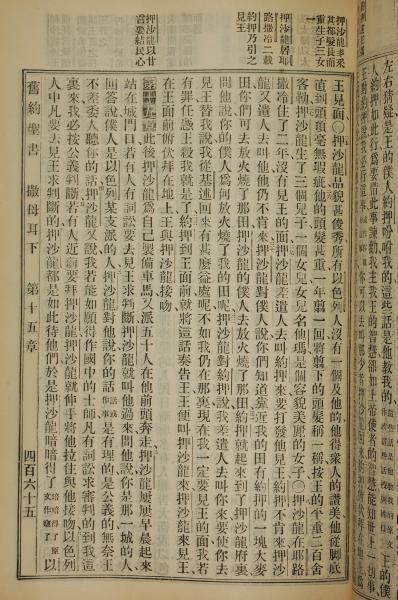 押沙龍丰采
甚都髮長而
重生子三女
一
押沙龍居耶
路撒冷二載
約押乃引之
見王
押沙龍以甘
言要結民心
王見面○押沙龍品貌甚俊秀所有以色列人沒有一個及他的他得衆人的讚美他從脚底
直到頭頂毫無瑕疵他的頭髮甚重一年剪一回將剪下的頭髮稱一稱按王的平重二百舍
客勒押沙龍生了三個兒子一個女兒女兒名他瑪是個容貌美麗的女子○押沙龍在耶路
撒冷住了二年沒有見王的面押沙龍差遣人去叫約押來要打發他見王約押不肯來押沙
龍又遣人去叫他他仍不肯來押沙龍對僕人說你們知道靠近我的田有約押的一塊大麥
田你們可去放火燒了那田押沙龍的僕人去放火燒了那田約押就起來到了押沙龍府裏
問他說你的僕人爲何放火燒了我的田呢押沙龍對約押說我差遣人去叫你來要使你去
見王替我說我從基述回來有甚麼益處呢不如我仍在那裏現在我一定要見王的面我若
有罪任憑王殺我就是了約押到王面前就將這話奏告王王便叫押沙龍來押沙龍來見王
在王面前俯伏拜在地上王與押沙龍接吻
第十五章此後押沙龍爲自己製備車馬又派五十人在他前頭奔走押沙龍屢屢早晨起來
站在城門口若有人有詞訟要去見王求判斷押沙龍就叫他過來問他說你是那一城的人
回答說僕人是以色列某支派的人押沙龍對他說你的話是有理的是公義的無奈王
不差委人聽你的話押沙龍又說我若能如願得作國中的士師凡有詞訟求審判的到我這
裏來我必按公義判斷若有人近前要拜押沙龍押沙龍就伸手將他拉住與他接吻以色列
人中凡要去見王求判斷的押沙龍都是如此待他們於是押沙龍暗暗得了以
舊約聖書　撒母耳下　第十五章　四百六十五